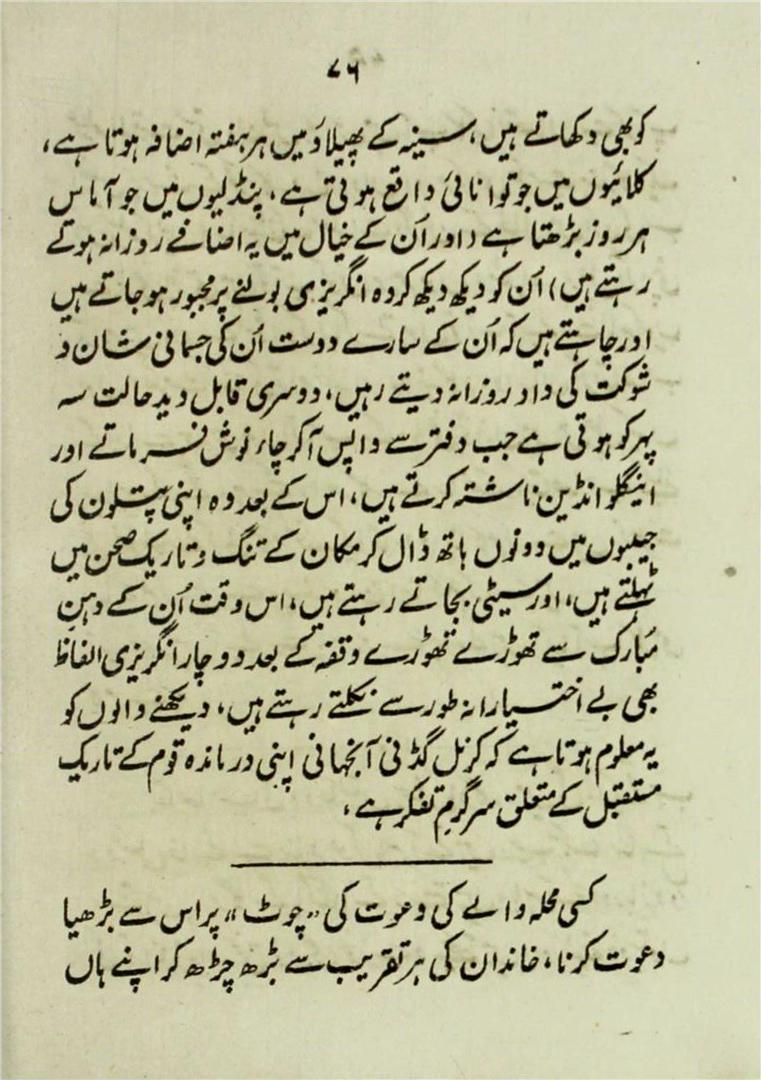 ۷۶
کو بھی دکھاتے ہیں، سینہ کے پھیلاؤ میں ہر ہفتہ اضافہ ہوتا ہے،
کلائیوں میں جو توانائی واقع ہوتی ہے، پنڈلیوں میں جو آماس
ہر روز بڑھتا ہے (اور اُن کے خیال میں یہ اضافے روزانہ ہوتے
رہتے ہیں) اُن کو دیکھ دیکھ کر وہ انگریزی بولنے پر مجبور ہو جاتے ہیں
اور چاہتے ہیں کہ اُن کے سارے دوست اُن کی جسمانی شان و
شوکت کی داد روزانہ دیتے رہیں، دوسری قابل دید حالت سہ
پہر کو ہوتی ہے جب دفتر سے واپس آکر چاء نوش فرماتے اور
اینگلو انڈین ناشتہ کرتے ہیں، اس کے بعد وہ اپنی پتلون کی
جیبوں میں دونوں ہاتھ ڈال کر مکان کے تنگ و تاریک صحن میں
ٹہلتے ہیں، اور سیٹی بجاتے رہتے ہیں، اس وقت اُن کے دہنِ
مُبارک سے تھوڑے تھوڑے وقفہ کے بعد دو چار انگریزی الفاظ
بھی بے اختیارانہ طور سے نکلتے رہتے ہیں، دیکھنے والوں کو
یہ معلوم ہوتا ہے کہ کرنل گڈنی آنجہانی اپنی درماندہ قوم کے تاریک
مستقبل کے متعلق سرگرمِ تفکر ہے،
کسی محلہ والے کی دعوت کی "چوٹ" پر اس سے بڑھیا
دعوت کرنا، خاندان کی ہر تقریب سے بڑھ چڑھ کر اپنے ہاں